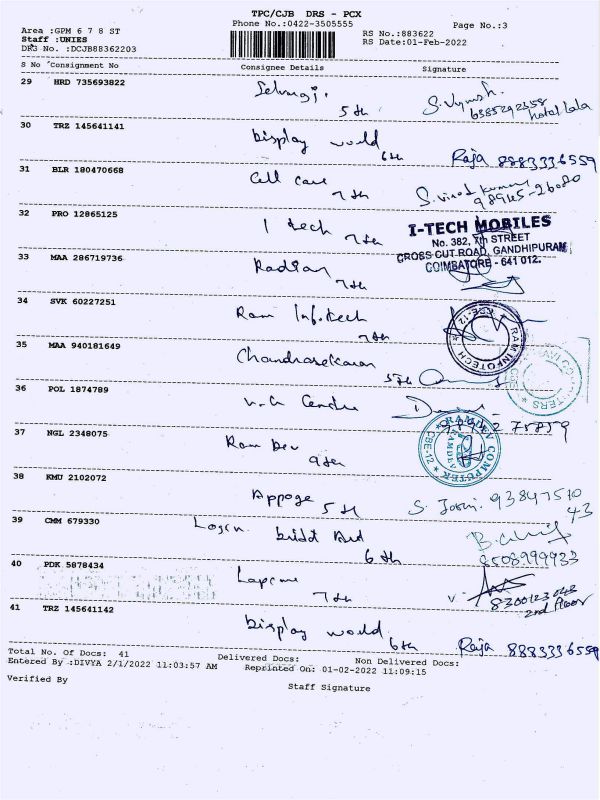 TPC/CJB DRS - PCX
Phone No.:0422-3505555
Page No.:3
Area :GPM 6 7 8 ST
RS No.:883622
Staff :UNIES
RS Date:01-Feb-2022
DRS No. :DCJB88362203
S No Consignment No Consignee Details Signature
29 HRD 735693822
5th
6385292358
hotel lala
30 TRZ 145641141 Display world
6th Raja 8883336559
31 BLR 180470668 Cell care
7th S. Vinod Kumar
98945-26080
32 PRO 12865125 I tech
7th
I-TECH MOBILES
No. 382, 7th STREET
CROSS CUT ROAD, GANDHIPURAM
COIMBATORE - 641 012.
33 MAA 286719736 Radian
7th
34 SVK 60227251 Ram Infotech
7th
RAM INFOTECH
CBE-12
35 MAA 940181649 Chandrasekaran
5th
COMPUTERS
36 POL 1874789
75859
37 NGL 2348075 Ram Dev
9th
RAMDEV COMPUTER
CBE-12
38 KMU 2102072 Appoge
5th 93847510
43
39 CMM 679330
6th
8508999933
40 PDK 5878434
7th
8300123043
2nd floor
41 TRZ 145641142 Display world
6th Raja 8883336559
Total No. Of Docs: 41 Delivered Docs: Non Delivered Docs:
Entered By :DIVYA 2/1/2022 11:03:57 AM Reprinted On: 01-02-2022 11:09:15
Verified By
Staff Signature